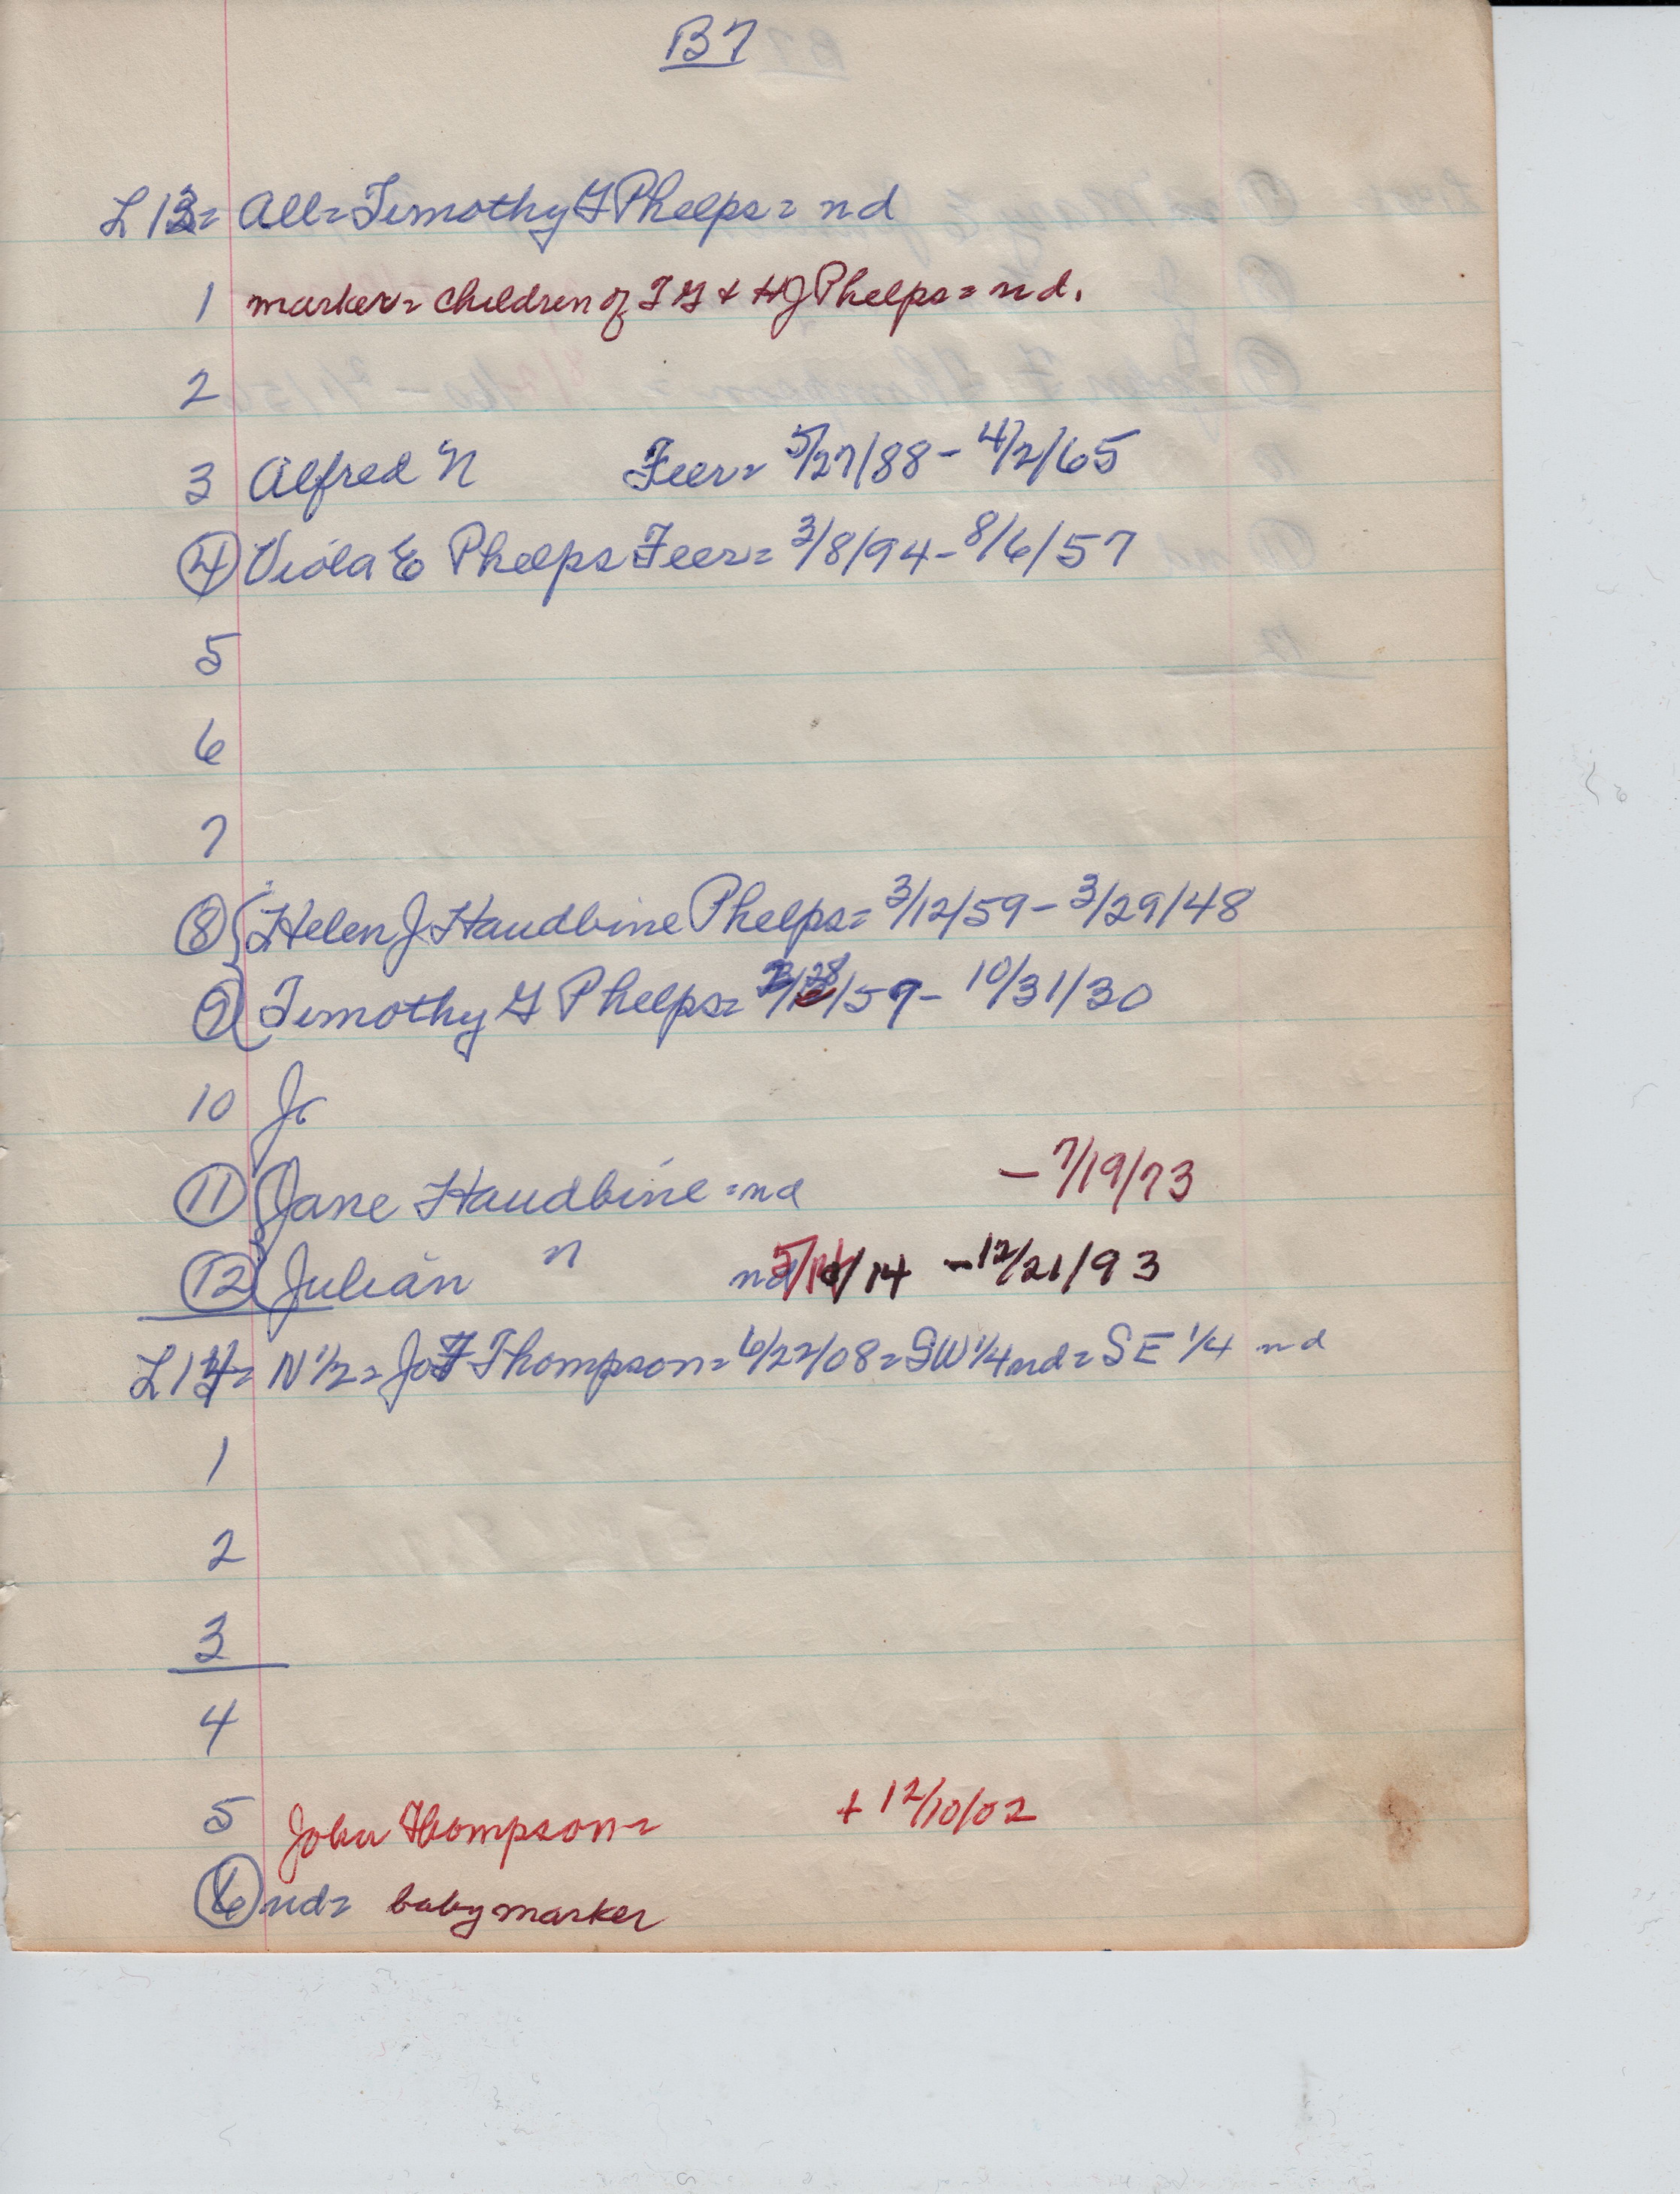 B7
L 13= All= Timothy G Phelps= nd
1 marker= children of T G + HJ Phelps= nd.
2
3 Alfred N Feer= 5/27/88 - 4/2/65
4 Viola E Phelps Feer= 3/8/94 - 8/6/57
5
6
7
8 { Helen J Haudbine Phelps= 3/12/59 - 3/29/48
9 { Timothy G Phelps= /59 - 10/31/30
10 Jr
11 { Jane Haudbine =nd - 7/19/73
12 { Julian " nd /14 - 12/21/93
L 14= N 1/2= Jo F Thompson= 6/22/08= SW 1/4 nd= SE 1/4 nd
1
2
3
4
5 John Thompson= + 12/10/02
6 nd= baby marker